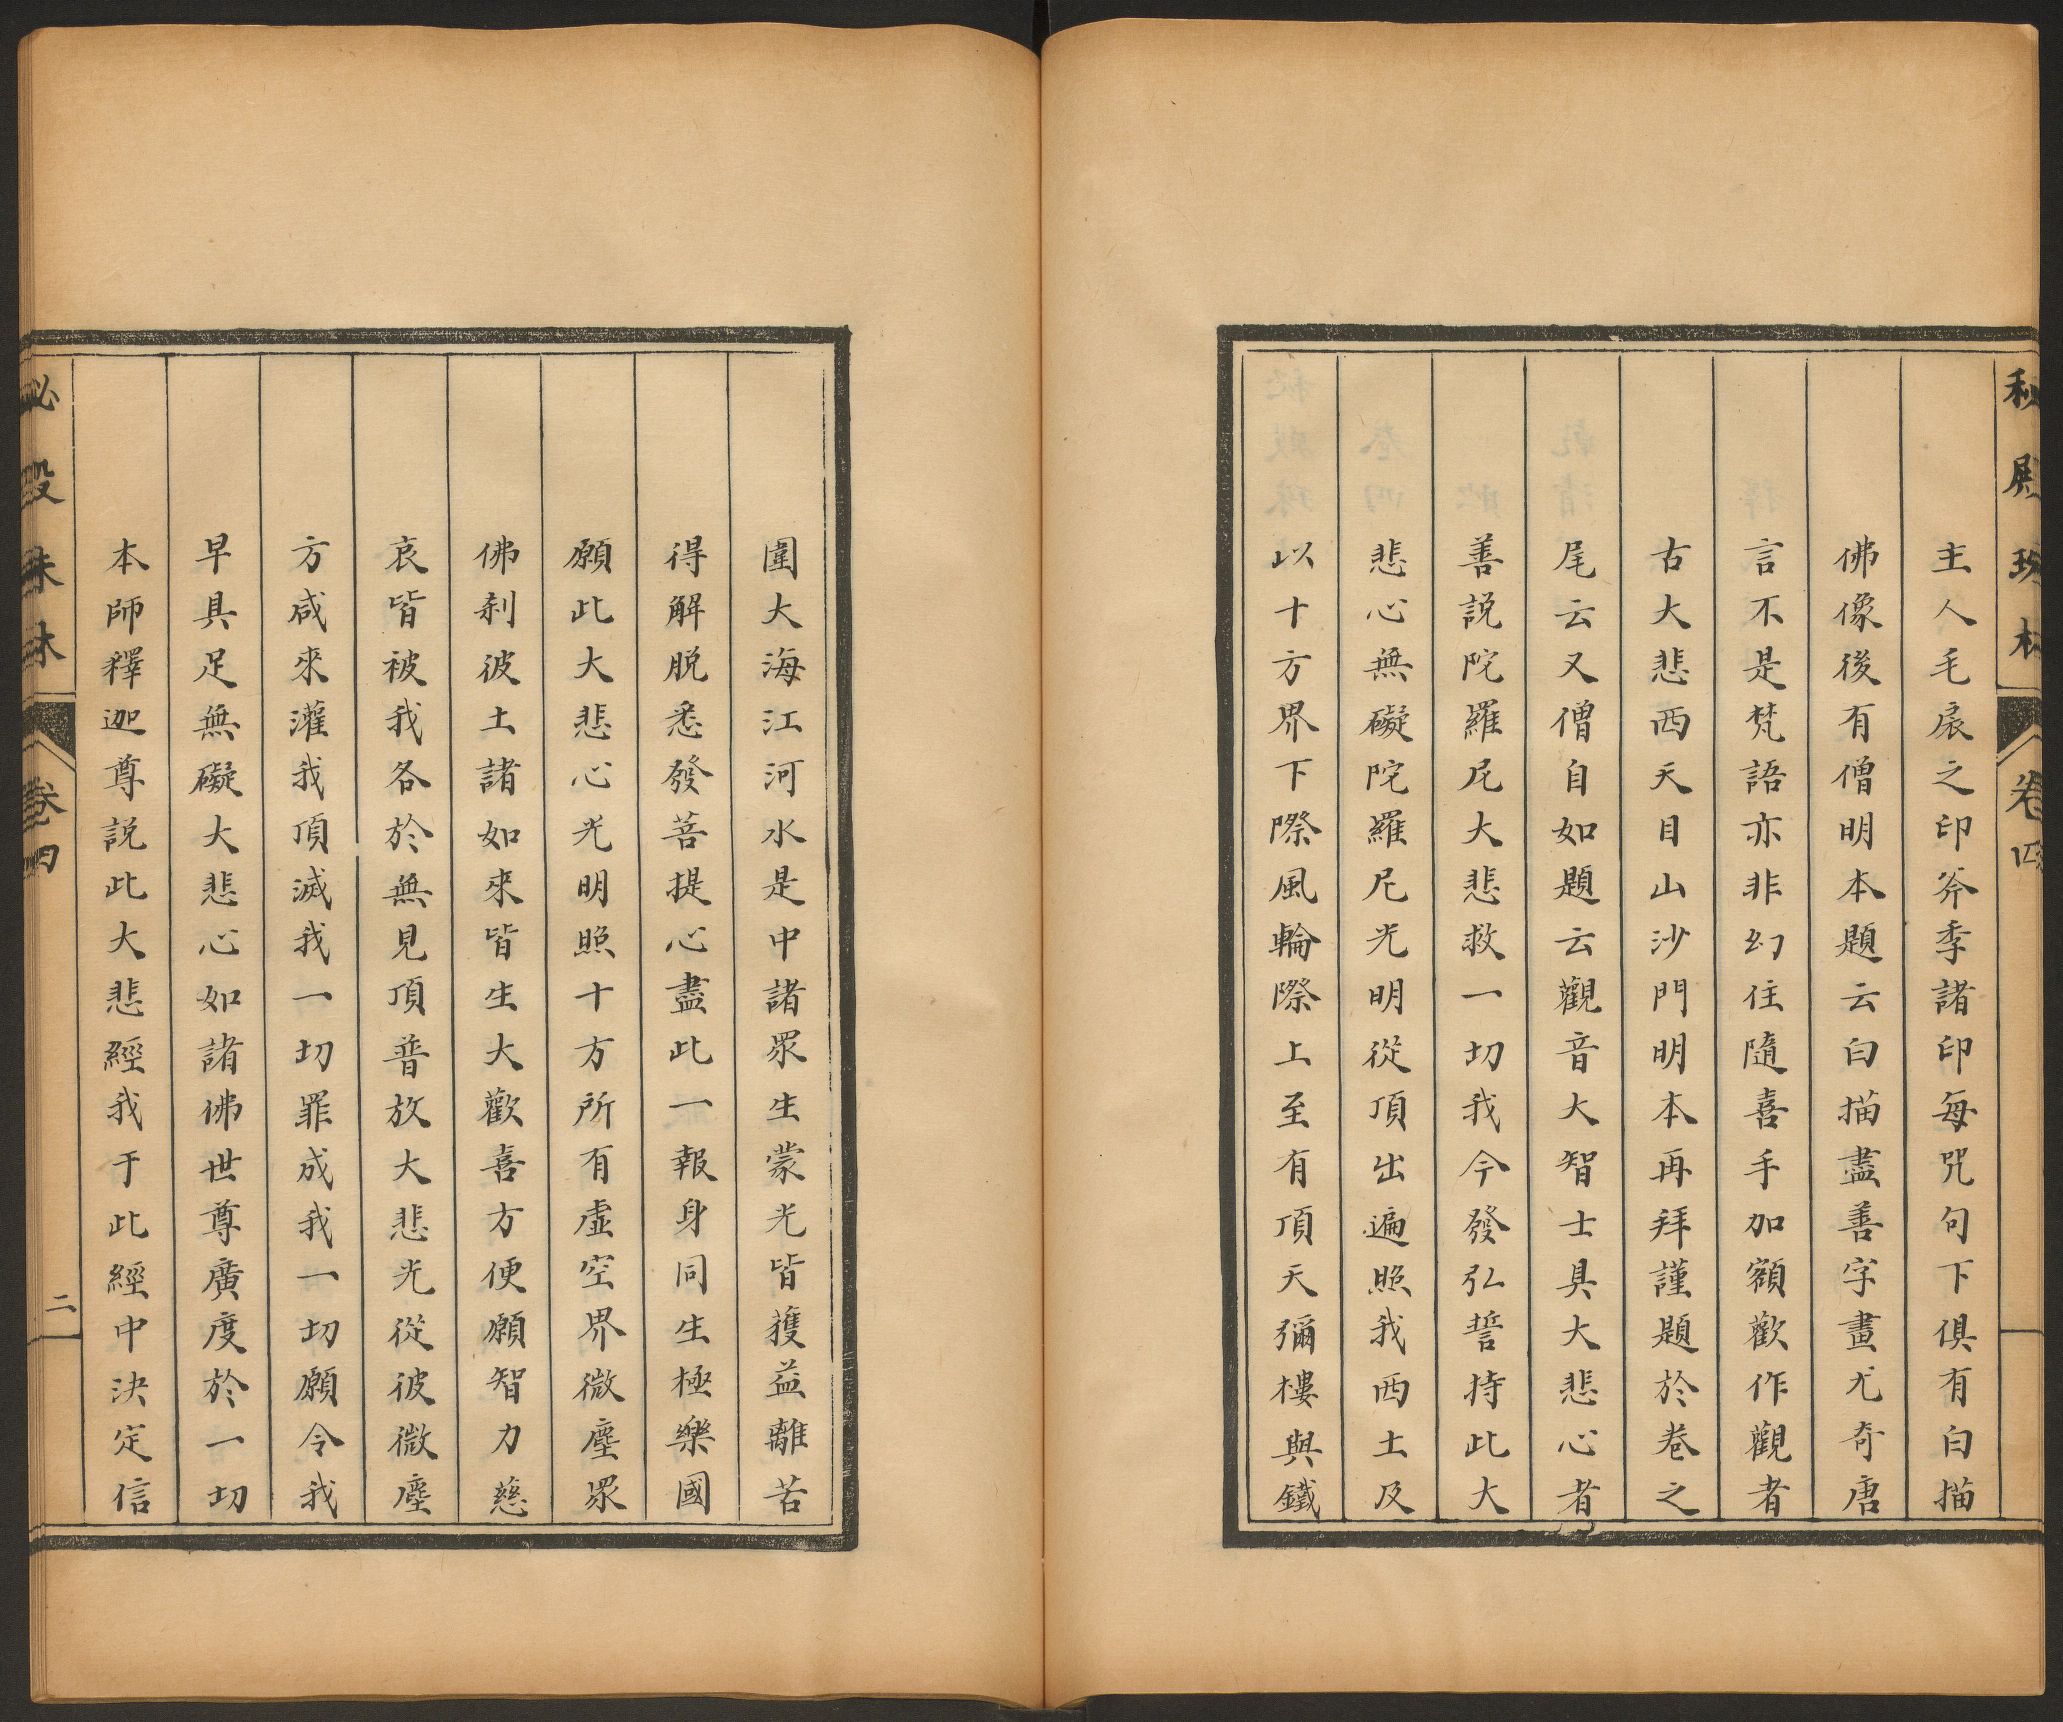 秘殿珠林
卷四
主人毛扆之印斧季諸印每咒句下俱有白描
佛像後有僧明本題云白描盡善字畫尤奇唐
言不是梵語亦非幻住隨喜手加額歡作觀者
古大悲西天目山沙門明本再拜謹題於卷之
尾云又僧自如題云觀音大智士具大悲心者
善說陀羅尼大悲救一切我今發弘誓持此大
悲心無礙陀羅尼光明從頂出遍照我西土及
以十方界下際風輪際上至有頂天彌樓與鐵
圍大海江河水是中諸眾生蒙光皆獲益離苦
得解脱悉發菩提心盡此一報身同生極樂國
願此大悲心光明照十方所有虛空界微塵眾
佛剎彼土諸如來皆生大歡喜方便願智力慈
哀皆被我各於無見頂普放大悲光從彼微塵
方咸來灌我頂滅我一切罪成我一切願令我
早具足無礙大悲心如諸佛世尊廣度於一切
本師釋迦尊說此大悲經我于此經中決定信
秘殿珠林
卷四
二